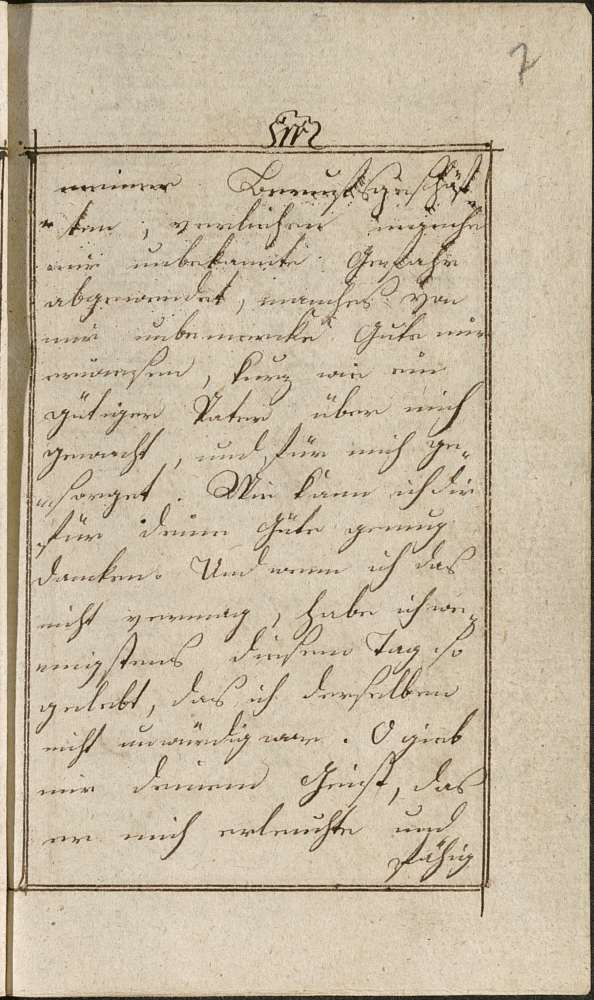 7
meiner Berufsgeschäf-
ten, verliehen, manche
mir unbekannte Gefahr
abgewendet, manches von
mir unbemerckte Gute mir
erwiesen, kurz wie ein
gütiger Vater über mich
gewacht, und für mich ge-
sorget. Wie kann ich dir
für deine Güte genug
dancken. Und wenn ich das
nicht vermag, habe ich we-
nigstens diesen Tag so
gelebt, das ich derselben
nicht unwürdig war. O gieb
mir deinen Geist, das
er mich erleuchte und
fähig